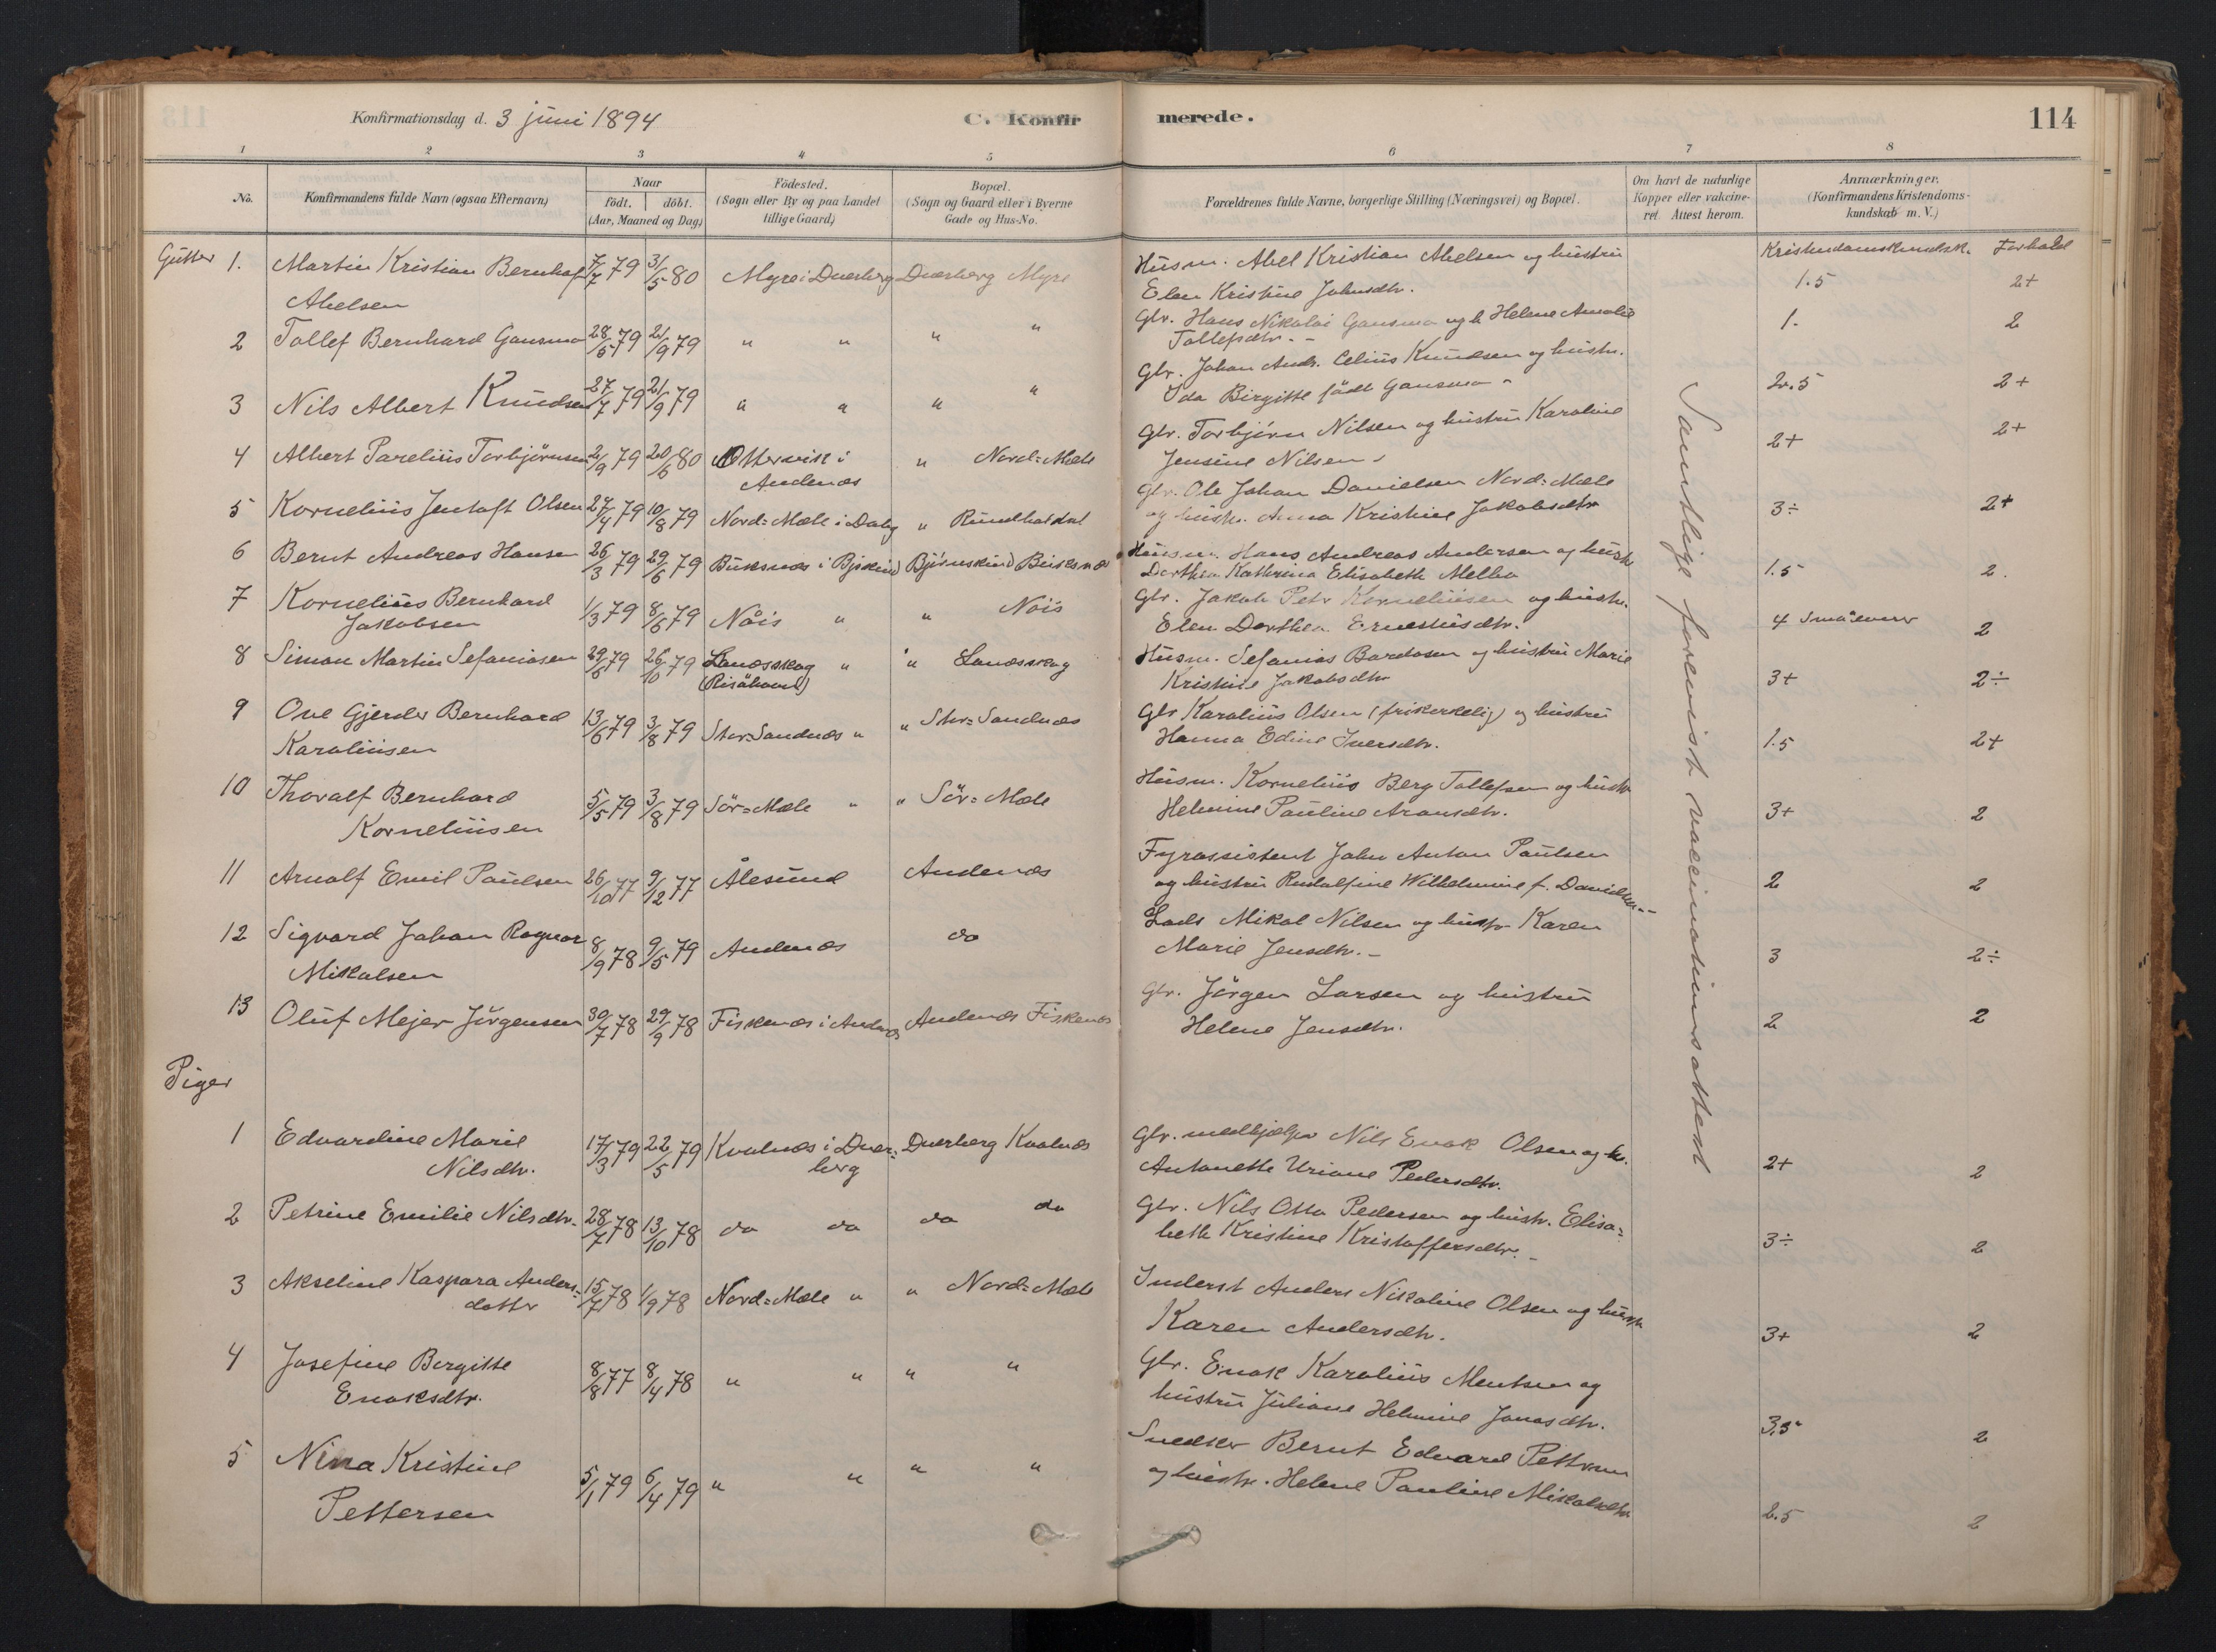 Konfirmationsdag d. 3 juni 1894
C. Konfirmerede.
114
1 2 3 4 5 6 7 8
No.
Konfirmandens fulde Navn (ogsaa Efternavn)
Naar
födt. döbt.
(Aar, Maaned og Dag)
Födested.
(Sogn eller By og paa Landet
tillige Gaard)
Bopæl.
(Sogn og Gaard eller i Byerne
Gade og Hus-No.
Forældrenes fulde Navne, borgerlige Stilling (Næringsvei) og Bopæl.
Om havt de naturlige
Kopper eller vakcine-
ret. Attest herom.
Anmærkninger.
(Konfirmandens Kristendoms-
kundskab m. V.)
Kristendomskundsk. Forhold
Gutter 1. Martin Kristian Bernhof 7/7 79 31/5 80 Myre i Dverberg Dverberg Myre Husm. Abel Kristian Abelsen og hustru 1.5 2+
Abelsen Elen Kristine Johnsdtr.
2 Tollef Bernhard Gansmo 28/5 79 21/9 79 " " " " Gbr. Hans Nikolai Gansmo og h. Helene Amalie 1. 2
Tollefsdtr. -
3 Nils Albert Knudsen 27/7 79 21/9 79 " " " " Gbr. Johan Andr. Celius Knudsen og hustr. 2.5 2+
Ida Birgitte födt Gansmo -
4 Albert Parelius Torbjörnsen 2/9 79 20/6 80 Ottervik i " Nord=Mele Gbr. Torbjörn Nilsen og hustru Karoline 2+ 2+
Andenæs Jensine Nilsen -
5 Kornelius Jentoft Olsen 27/4 79 10/8 79 Nord=Mele i Dvbg " Rundholdet Gbr. Ole Johan Danielsen Nord=Mele 3÷ 2+
og hustr. Anna Kristine Jakobsdtr
6 Bernt Andreas Hansen 26/3 79 29/6 79 Buksnæs i Bjskind Björnskind Buksnæs Husm. Hans Andreas Andersen og hustr 1.5 2.
Dorthea Kathrina Elisabeth Melbo
7 Kornelius Bernhard 1/3 79 8/6 79 Nöis " " Nöis Gbr. Jakob Petr Korneliusen og hustr. 4 2
Jakobsen Elen Dorthea Ernestusdtr.
8 Simon Martin Sefaniasen 29/6 79 26/10 79 Lanæsskog " " Lanæsskog Husm. Sefanias Bardosen og hustru Marie 3+ 2÷
(Risöhavn) Kristine Jakobsdtr
9 Ove Gjerder Bernhard 13/6 79 3/8 79 Stor=Sandnæs " " Stor=Sandnæs Gbr Karolius Olsen (frikirkelig) og hustru 1.5 2+
Karoliusen Hanna Edine Iversdtr.
10 Thoralf Bernhard 5/5 79 3/8 79 Sör=Mele " " Sör=Mele Husm. Kornelius Berg Tollefsen og hustr 3+ 2
Korneliusen Helmine Pauline Aronsdtr.
11 Arnolf Emil Paulsen 26/10 77 9/12 77 Ålesund Andenæs Fyrassistent John Anton Paulsen 2 2
og hustru Rudolfine Wilhelmine f. Danielsen -
12 Sigvard Johan Ragnar 8/9 78 9/5 79 Andenæs do Lods Mikal Nilsen og hustr Karen 3 2÷
Mikalsen Marie Jensdtr. -
13 Oluf Mejer Jörgensen 30/7 78 29/9 78 Fiskenæs i Andnæs Andenæs Fiskenæs Gbr. Jörgen Larsen og hustru 2 2
Helene Jensdtr.
Samtlige forevist vaccinationsattest
Piger
1 Edvardine Marie 17/3 79 22/5 79 Kvalnæs i Dver= Dverberg Kvalnæs Gbr. medhjælper Nils Enok Olsen og h. 2+ 2
Nilsdtr. berg Antonette Uriane Pedersdtr.
2 Petrine Emilie Nilsdtr. 28/7 78 13/10 78 do do do do Gbr. Nils Otto Pedersen og hustr. Elisa= 3÷ 2
beth Kristine Kristoffersdtr. -
3 Akseline Kaspara Anders= 15/7 78 1/9 78 Nord=Mele " " Nord=Mele Inderst Anders Nikoline Olsen og hustr 3+ 2
datter Karen Andersdtr.
4 Josefine Bergitte 8/8 77 8/4 78 " " " " Gbr. Enok Karolius Mentsen og 3.5 2
Enoksdtr. hustru Juliane Helmine Jonasdtr.
5 Nina Kristine 5/1 79 6/4 79 " " " " Snedker Bernt Edvard Pettersen 2.5 2
Pettersen og hustr. Helene Pauline Mikalsdtr.